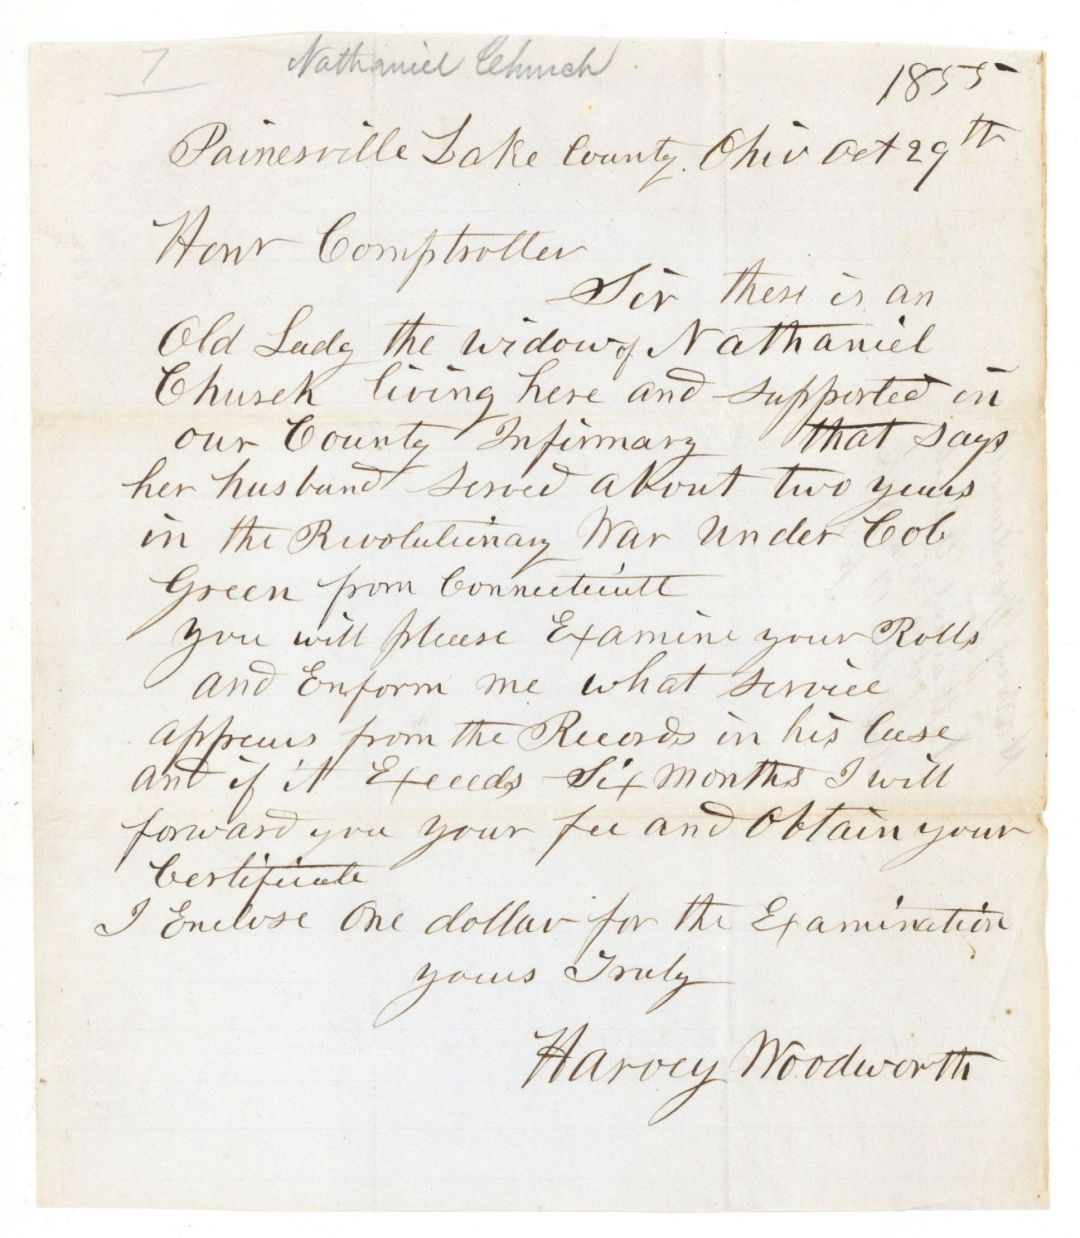 7 Nathaniel Church
1855
Painesville Lake County. Ohio Oct 29th
Honr Comptroller
Sir there is an
Old Lady the widow of Nathaniel
Church living here and supported in
our County Infirmary that says
her husband served about two years
in the Revolutionary War under Col
Green from Connecticutt
you will please Examine your Rolls
and Enform me what service
appears from the Records in his Case
and if it Exceeds Six months I will
forward you your fee and Obtain your
Certificate
I Enclose One dollar for the Examination
yours Truly
Harvey Woodworth